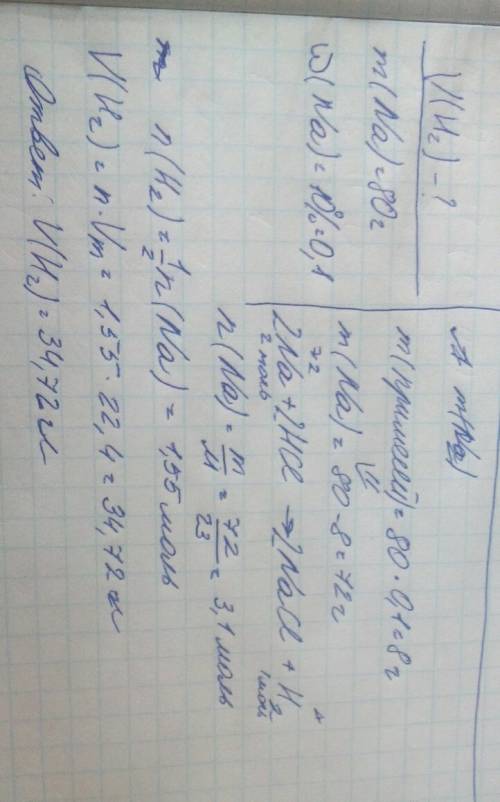 V(H₂) - ?
m(Na) = 80 г
ω(Na) = 10% = 0,1
m(Na)
m(примесей) = 80 · 0,1 = 8 г
⇓
m(Na) = 80 - 8 = 72 г
72
2Na + 2HCl → 2NaCl + H₂
2 моль 1 моль
n(Na) = m/M = 72/23 = 3,1 моль
n(H₂) = 1/2 n(Na) = 1,55 моль
V(H₂) = n · Vm = 1,55 · 22,4 = 34,72 л
Ответ: V(H₂) = 34,72 л